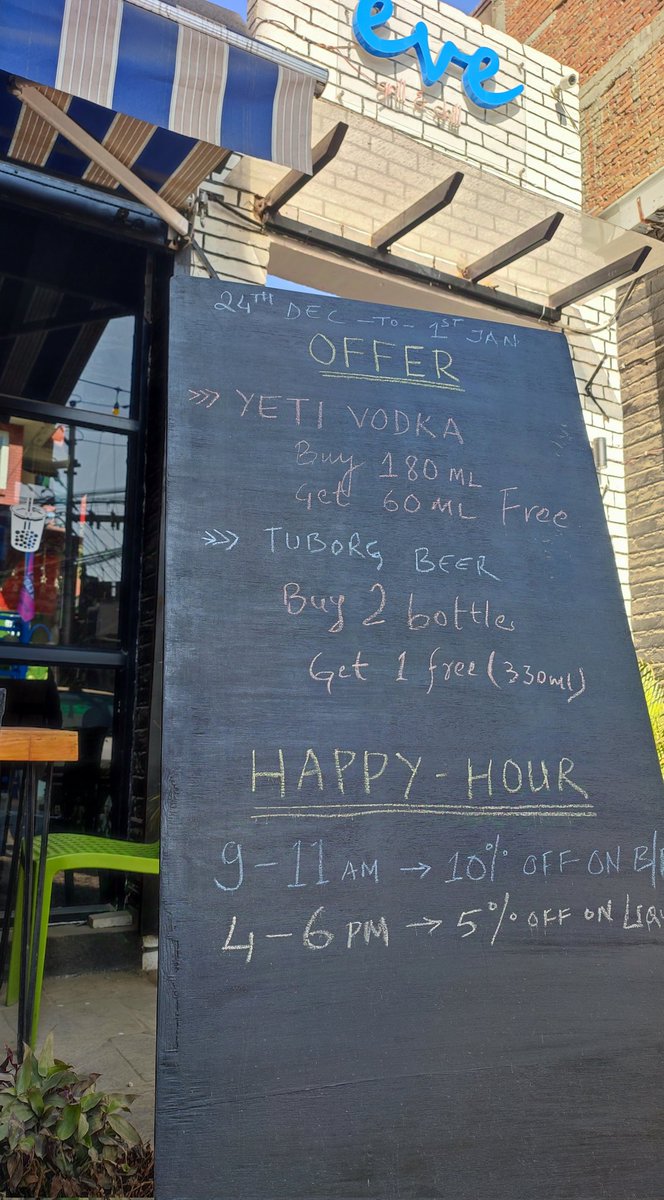 eve
24TH DEC -TO- 1ST JAN
OFFER
>>> YETI VODKA
Buy 180 ML
Get 60 ML Free
>>> TUBORG BEER
Buy 2 bottles
Get 1 free (330ml)
HAPPY-HOUR
9-11 AM → 10% OFF ON B/
4-6 PM → 5% OFF ON